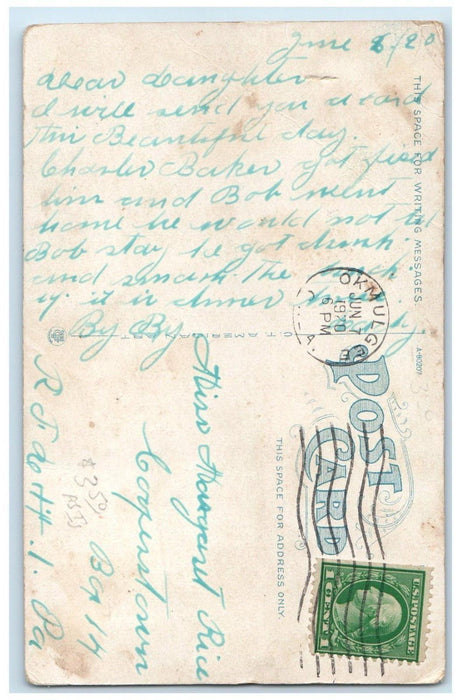 June 6/20
Dear Daughter
I will send you a card
this Beautiful day.
Charlie Baker got fired
him and Bob went
home he would not let
Bob stay he got drunk
and smash the mach
up. it is dinner
By By
THIS SPACE FOR WRITING MESSAGES
OKMULGEE
JUN 7
6 PM
1920
OKLA.
C.T. AMERICAN ART
A-80207
POST
CARD
THIS SPACE FOR ADDRESS ONLY
Miss Margaret Rice
Cooperstown
Box 14
R F D # 1. Pa
3.50
U.S. POSTAGE
1 CENT 1